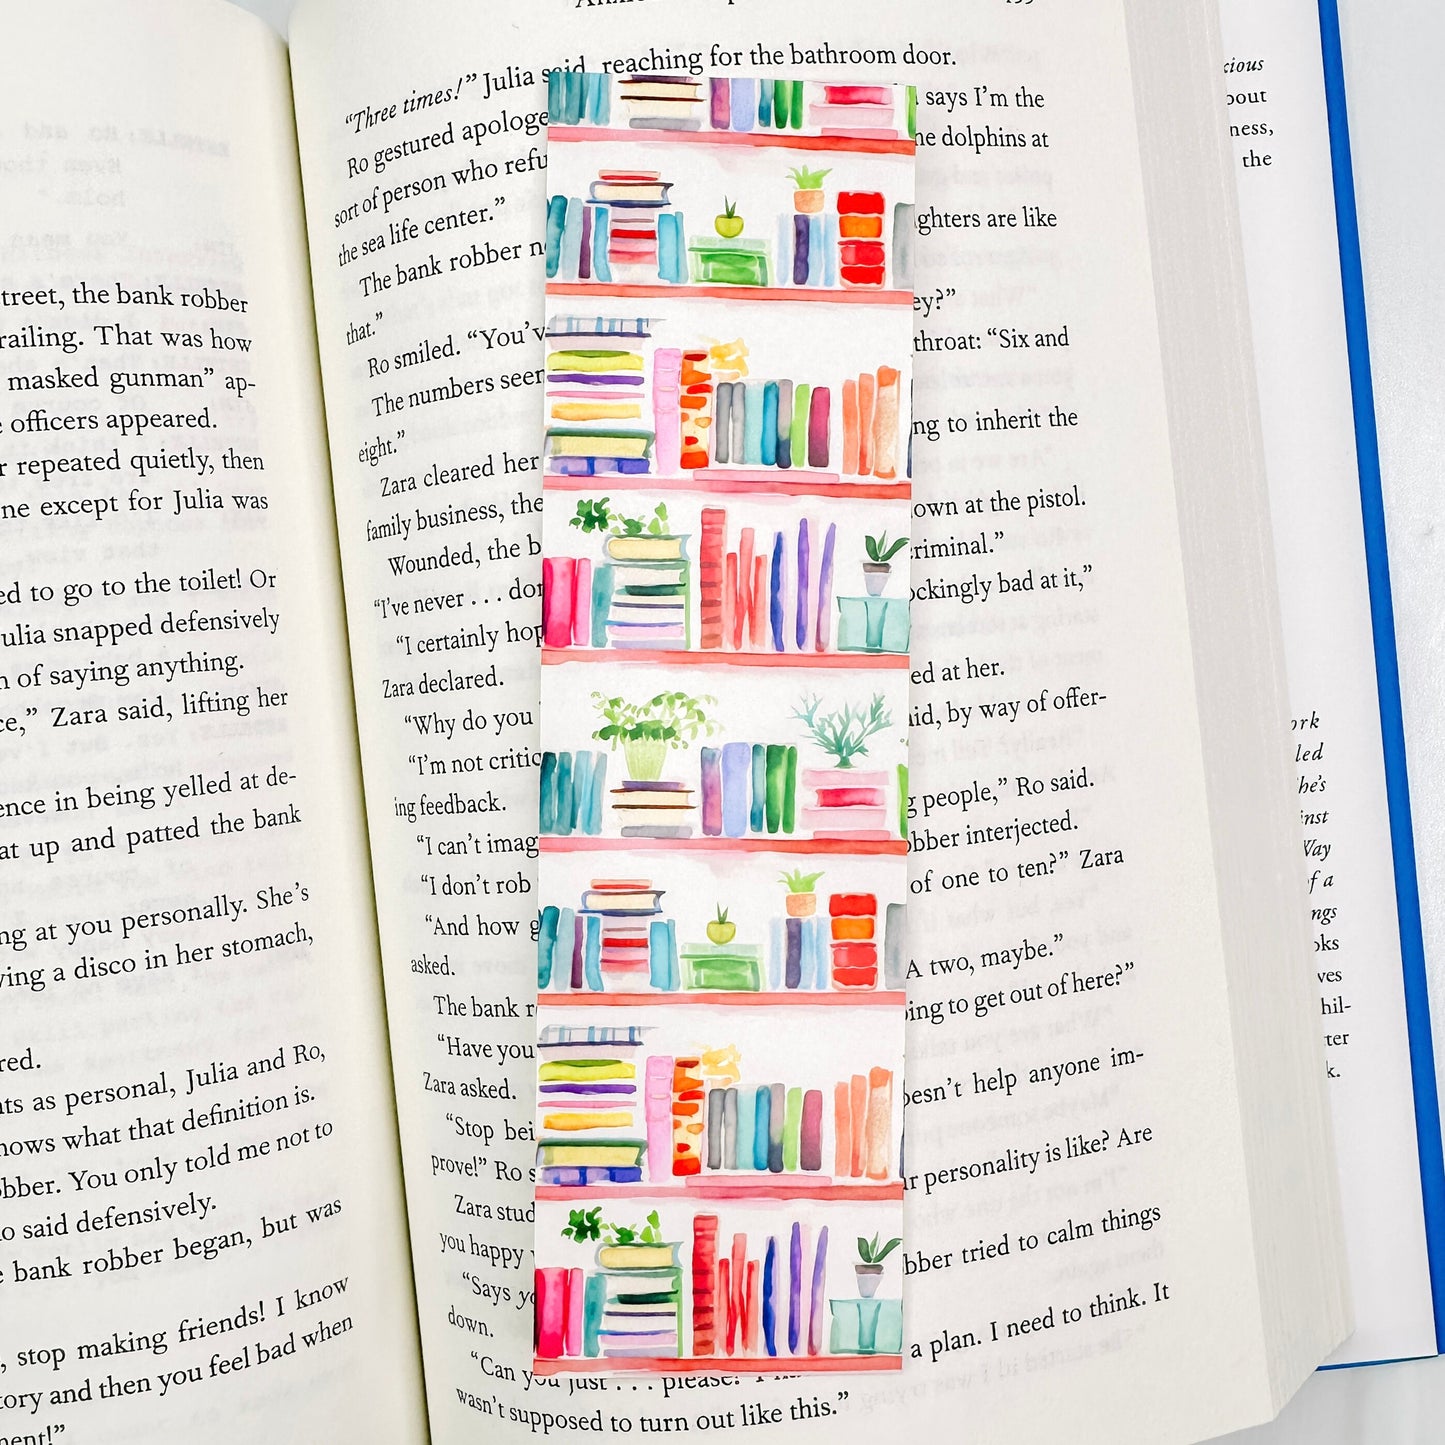 treet, the bank robber
railing. That was how
masked gunman” ap-
officers appeared.
r repeated quietly, then
ne except for Julia was
ed to go to the toilet! Or
ulia snapped defensively
n of saying anything.
ce,” Zara said, lifting her
ence in being yelled at de-
at up and patted the bank
ng at you personally. She’s
ving a disco in her stomach,
red.
nts as personal, Julia and Ro,
nows what that definition is.
bber. You only told me not to
o said defensively.
e bank robber began, but was
, stop making friends! I know
tory and then you feel bad when
nent!”
“Three times!” Julia said, reaching for the bathroom door.
Ro gestured apologe says I’m the
sort of person who refu he dolphins at
the sea life center.”
The bank robber n ghters are like
that.”
Ro smiled. “You’v ey?”
The numbers seen throat: “Six and
eight.”
Zara cleared her ng to inherit the
family business, the
Wounded, the b own at the pistol.
“I’ve never . . . dor criminal.”
“I certainly hop ockingly bad at it,”
Zara declared.
“Why do you ed at her.
“I’m not critic aid, by way of offer-
ing feedback.
“I can’t imag g people,” Ro said.
“I don’t rob obber interjected.
“And how g of one to ten?” Zara
asked.
The bank r A two, maybe.”
“Have you ing to get out of here?”
Zara asked.
“Stop bei esn’t help anyone im-
prove!” Ro s
Zara stud r personality is like? Are
you happy
“Says yo bber tried to calm things
down.
“Can you just . . . please? I a plan. I need to think. It
wasn’t supposed to turn out like this.”
cious
bout
ness,
the
ork
led
he’s
inst
Way
of a
ngs
oks
ves
hil-
ter
k.